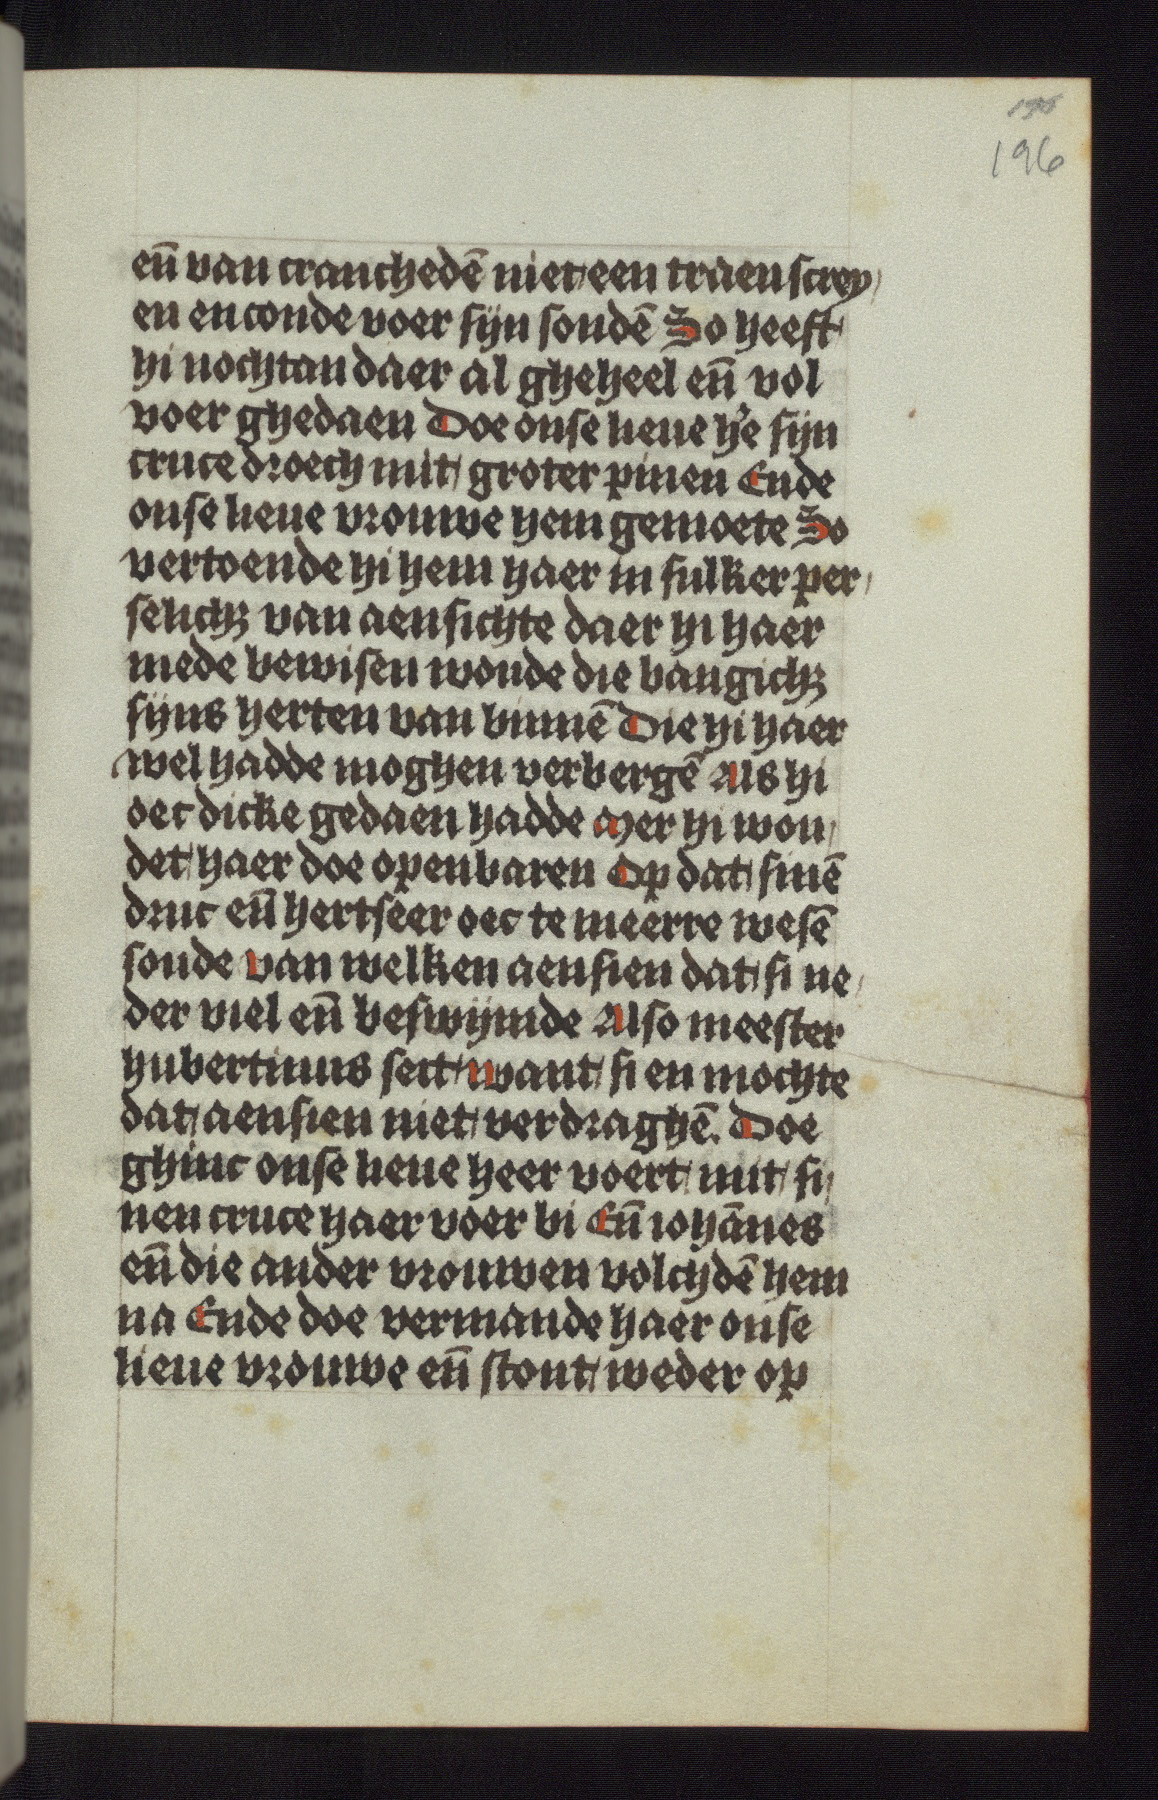 196
eñ van cranchedē niet een traen screy/
en en conde voer sijn sondē So heeft
hi nochtan daer al gheheel eñ vol
voer ghedaen Doe onse lieue hr̄e sijn
cruce droech mit groter pinen Ende
onse lieue vrouwe hem gemoete So
vertoende hi hem haer in sulker per/
selichꝫ van aensichte daer hi haer
mede bewisen woude die bangichꝫ
sijns herten van binnē Die hi haer
wel hadde moghen verbergē Als hi
oec dicke gedaen hadde Mer hi wou/
det haer doe openbaren Op dat sinē
druc eñ hertseer oec te meerre wesē
soude van welken aensien dat si ne/
der viel eñ beswijmde Also meester
hubertinus seit want si en mochte
dat aensien niet verdraghē. Doe
ghinc onse lieue heer voert mit si/
nen cruce haer voer bi Eñ iohānes
eñ die ander vrouwen volchdē hem
na Ende doe vermande haer onse
lieue vrouwe eñ stont weder op